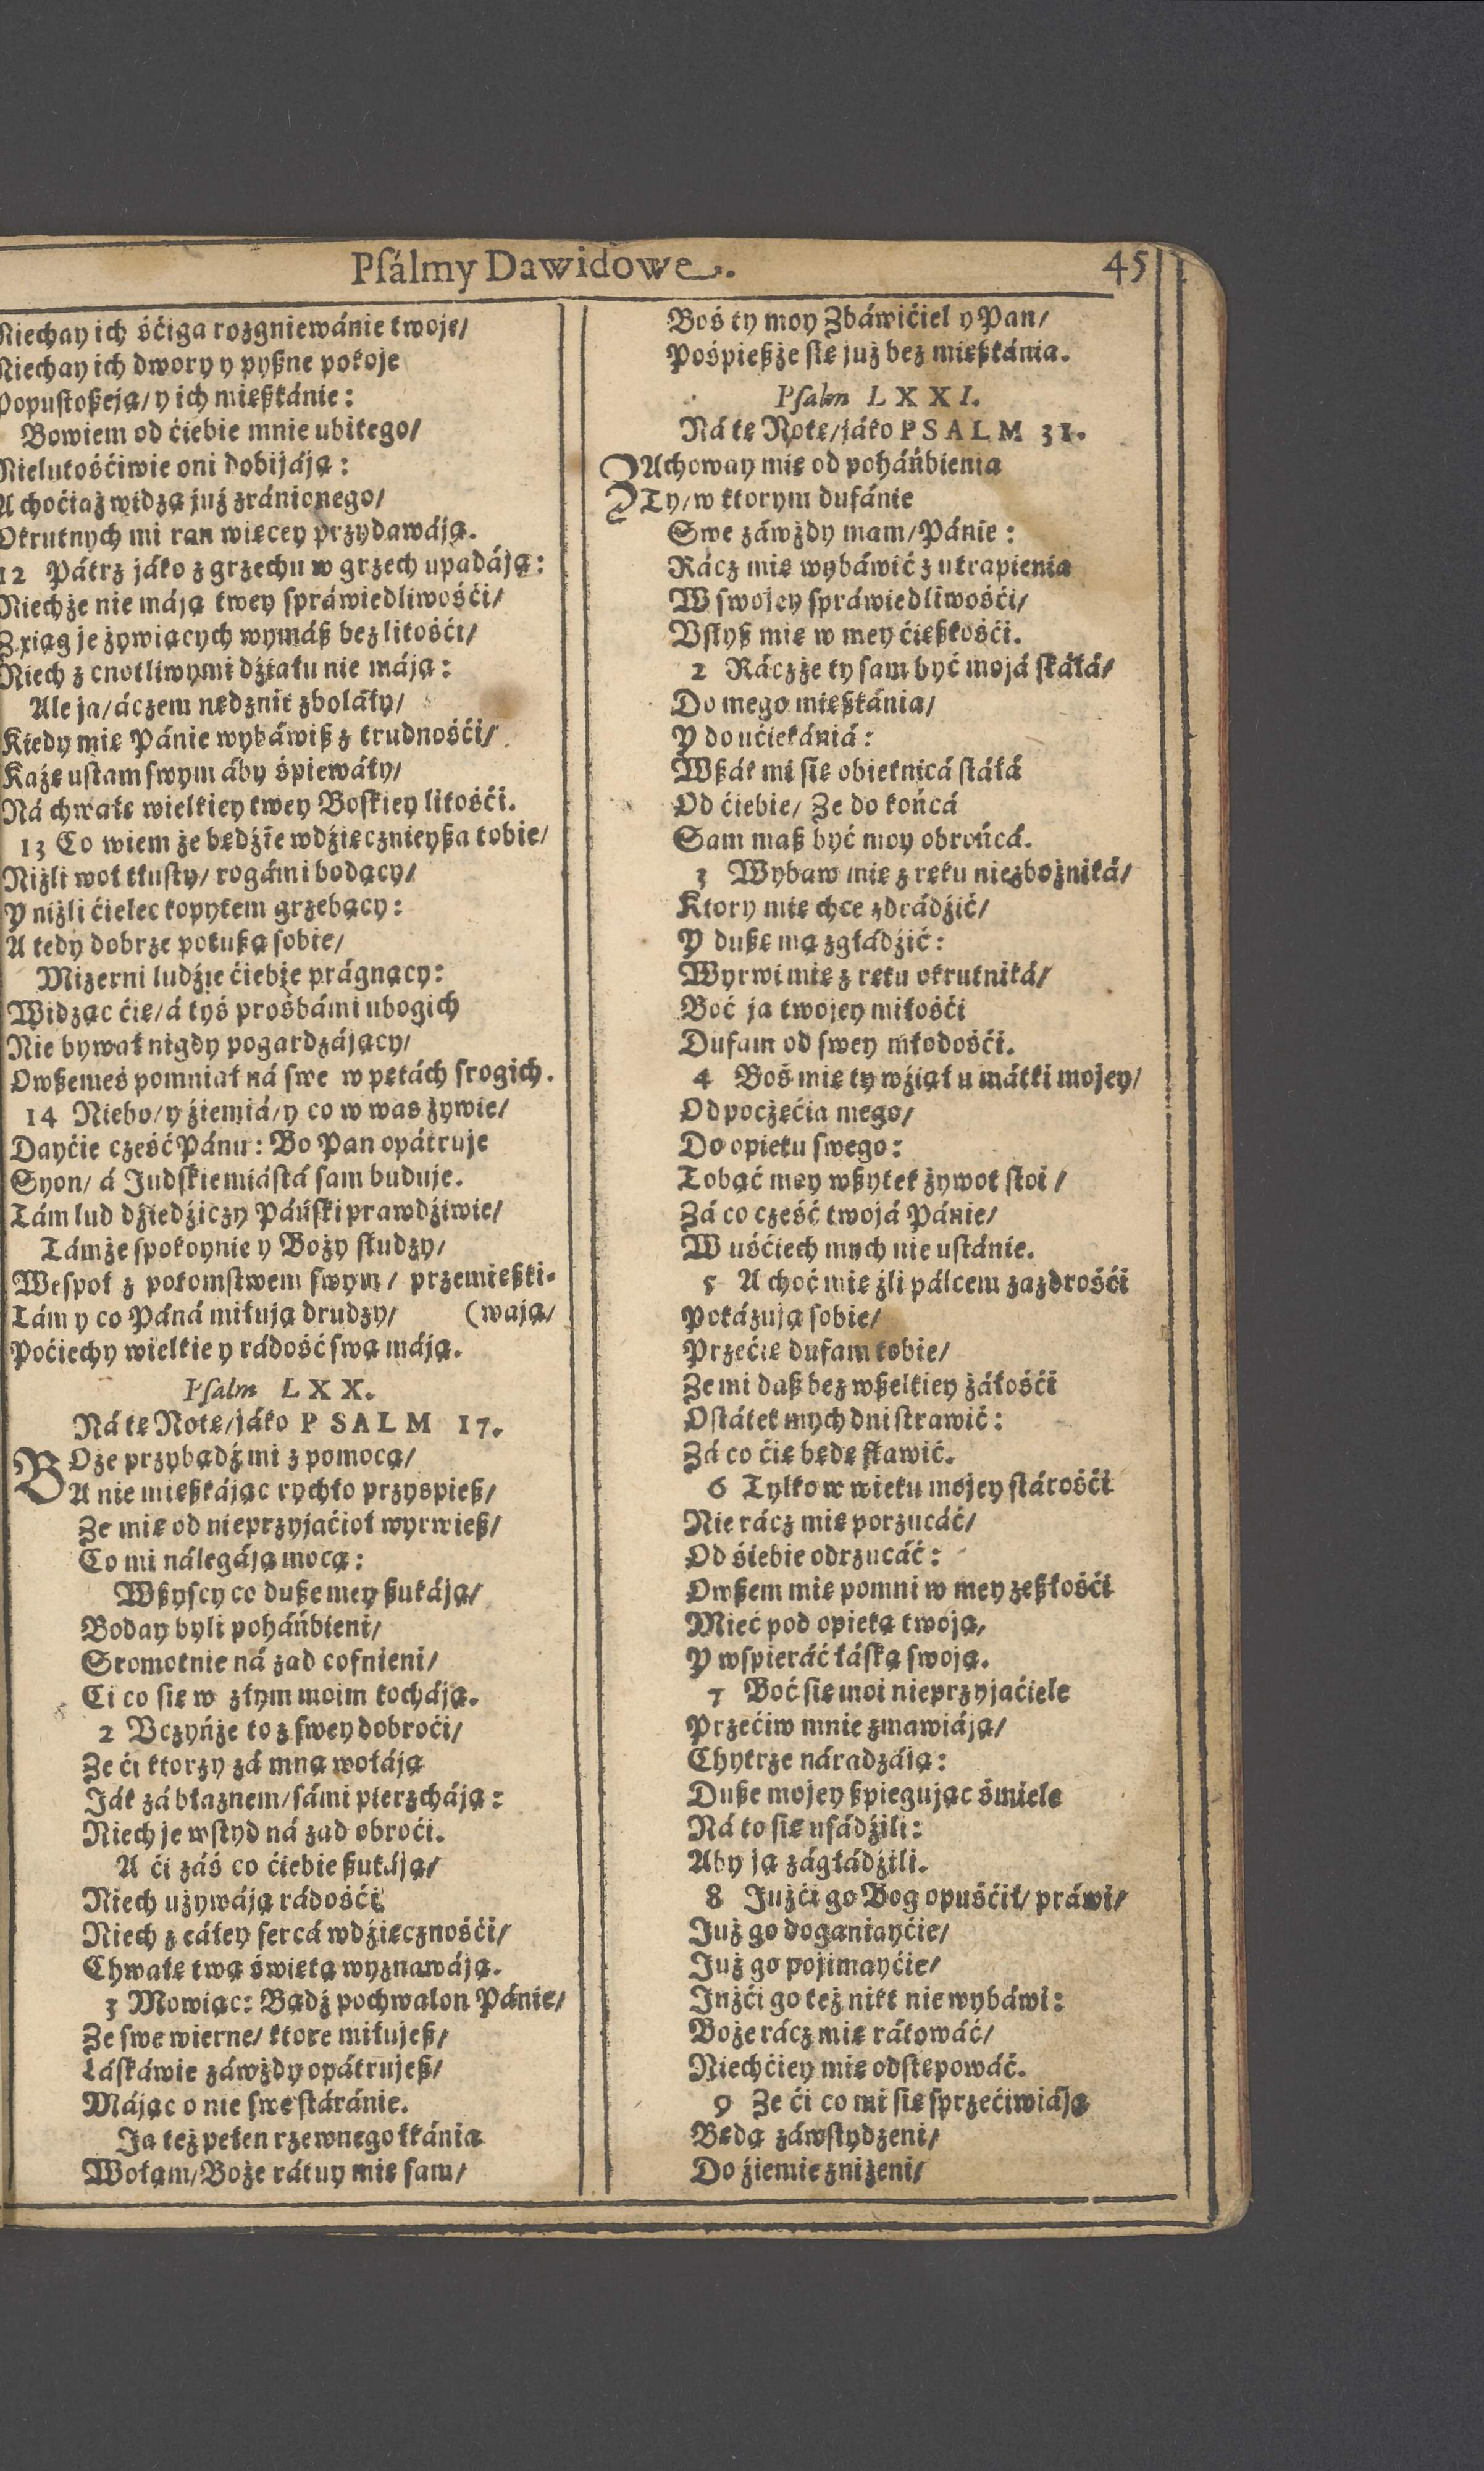 Psálmy Dawidowe.
45
Niechay ich śćiga rozgniewánie twoje/
Niechay ich dwory y pyßne pokoje
Popustoßeją/ y ich mießkánie:
Bowiem od ćiebie mnie ubitego/
Nielutośćiwie oni dobijáją:
A choćiaż widzą już zránionego/
Okrutnych mi ran więcey przydawáją.
12 Pátrz jáko z grzechu w grzech upadáją:
Niechże nie máją twey spráwiedliwośći/
Z xiąg je żywiących wymáß bez litośći/
Niech z cnotliwymi dźiału nie máją:
Ale ja/ áczem nędznie zboláły/
Kiedy mię Pánie wybáwiß z trudnośći/
Każę ustam swym áby śpiewáły/
Ná chwałę wielkiey twey Boskiey litośći.
13 Co wiem że będźie wdźięcznieyßa tobie/
Niżli woł tłusty/ rogámi bodący/
Y niżli ćielec kopytem grzebący:
A tedy dobrze potußą sobie/
Mizerni ludźie ćiebie prágnący:
Widząc ćię/ á tyś prośbámi ubogich
Nie bywał nigdy pogardzájący/
Owßemeś pomniał ná swe w pętách srogich.
14 Niebo/ y źiemiá/ y co w was żywie/
Dayćie cześć Pánu: Bo Pan opátruje
Syon/ á Judskie miástá sam buduje.
Tám lud dźiedźiczy Páński prawdźiwie/
Támże spokoynie y Boży słudzy/
Wespoł z potomstwem swym/ przemießki-
Tám y co Páná miłują drudzy/ (wają/
Poćiechy wielkie y rádość swą máją.
Psalm LXX.
Ná tę Notę/ jáko PSALM 17.
BOże przybądź mi z pomocą/
A nie mießkájąc rychło przyspieß/
Że mię od nieprzyjaćioł wyrwieß/
Co mi nálegáją mocą:
Wßyscy co dußę mey ßukáją/
Boday byli poháńbieni/
Sromotnie ná zad cofnieni/
Ci co się w złym moim kocháją.
2 Uczyńże to z swey dobroći/
Że ći ktorzy zá mną wołáją
Ják zá błaznem/ sámi pierzcháją:
Niech je wstyd ná zad obroći.
A ći záś co ćiebie ßukáją/
Niech używáją rádośći
Niech z cáłey sercá wdźięcznośći/
Chwałę twą świętą wyznawáją.
3 Mowiąc: Bądź pochwalon Pánie/
Że swe wierne/ ktore miłujeß/
Łáskáwie záwżdy opátrujeß/
Májąc o nie swe stáránie.
Ja też pełen rzewnego łkánia
Wołam/ Boże rátuy mię sam/
Boś ty moy Zbáwićiel y Pan/
Pośpießże się już bez mießkánia.
Psalm LXXI.
Ná tę Notę/ jáko PSALM 31.
ZAchoway mię od poháńbienia
Ty/ w ktorym dufánie
Swe záwżdy mam/ Pánie:
Rácz mię wybáwić z utrapienia
W swojey spráwiedliwośći/
Usłyß mię w mey ćięßkośći.
2 Ráczże ty sam być mojá skáłá/
Do mego mießkánia/
Y do ućiekániá:
Wßák mi się obietnicá stáłá
Od ćiebie/ Że do końcá
Sam maß być moy obrońcá.
3 Wybaw mię z ręku niezbożniká/
Ktory mię chce zdrádźić/
Y dußę mą zgłádźić:
Wyrwi mię z ręku okrutniká/
Boć ja twojey miłośći
Dufam od swey młodośći.
4 Boś mię ty wźiął u mátki mojey/
Od poczęćia mego/
Do opieku swego:
Tobąć mey wßytek żywot stoi/
Zá co cześć twojá Pánie/
W uśćiech mych nie ustánie.
5 A choć mię źli pálcem zazdrośći
Pokázują sobie/
Przećię dufam tobie/
Że mi daß bez wßelkiey żáłośći
Ostátek mych dni strawić:
Zá co ćię będę sławić.
6 Tylko w wieku mojey stárośći
Nie rácz mię porzucáć/
Od śiebie odrzucáć:
Owßem mię pomni w mey zeßłośći
Mieć pod opieką twoją,
Y wspieráć łáską swoją.
7 Boć się moi nieprzyjaćiele
Przećiw mnie zmawiáją/
Chytrze náradzáią:
Dußę mojey ßpiegując śmiele
Ná to się usádźili:
Aby ją zágłádźili.
8 Jużći go Bog opuśćił/ práwi/
Już go doganiayćie/
Już go pojimayćie/
Jużći go też nikt nie wybáwi:
Boże rácz mię rátowáć/
Niechćiey mię odstępowáć.
9 Że ći co mi się sprzećiwiáją
Będą záwstydzeni/
Do źiemie zniżeni/